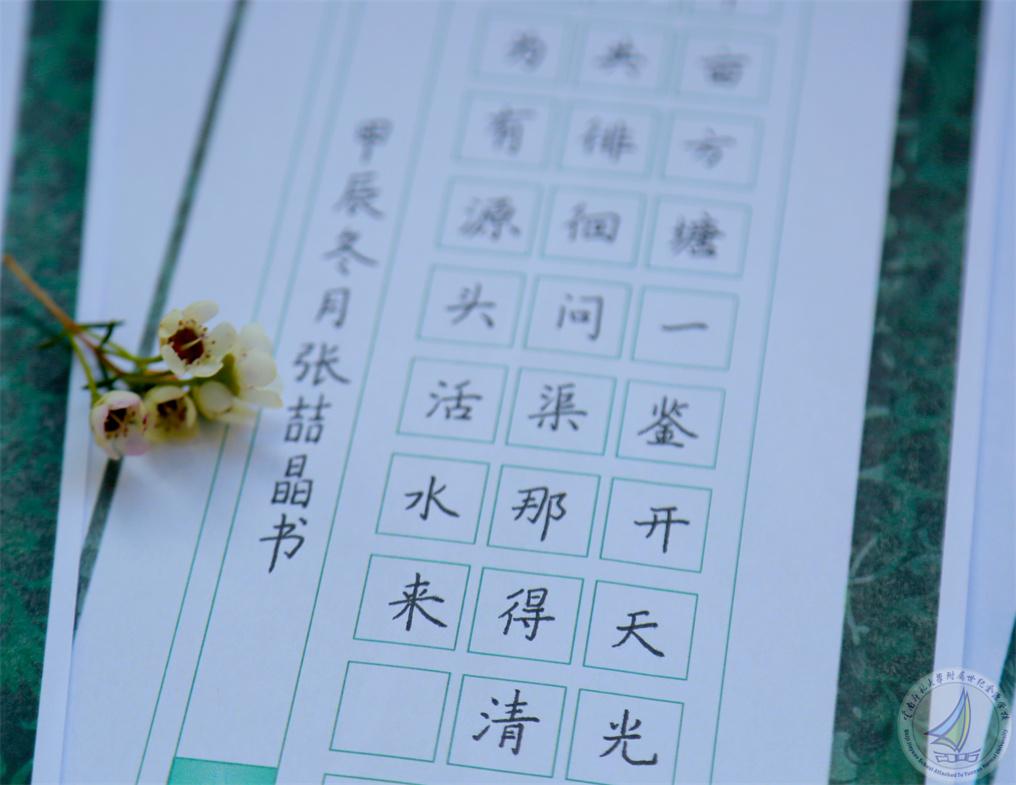 亩方塘一鉴开天光
共徘徊问渠那得清
为有源头活水来
甲辰冬月张喆晶书
School Attached To Yunnan Normal University